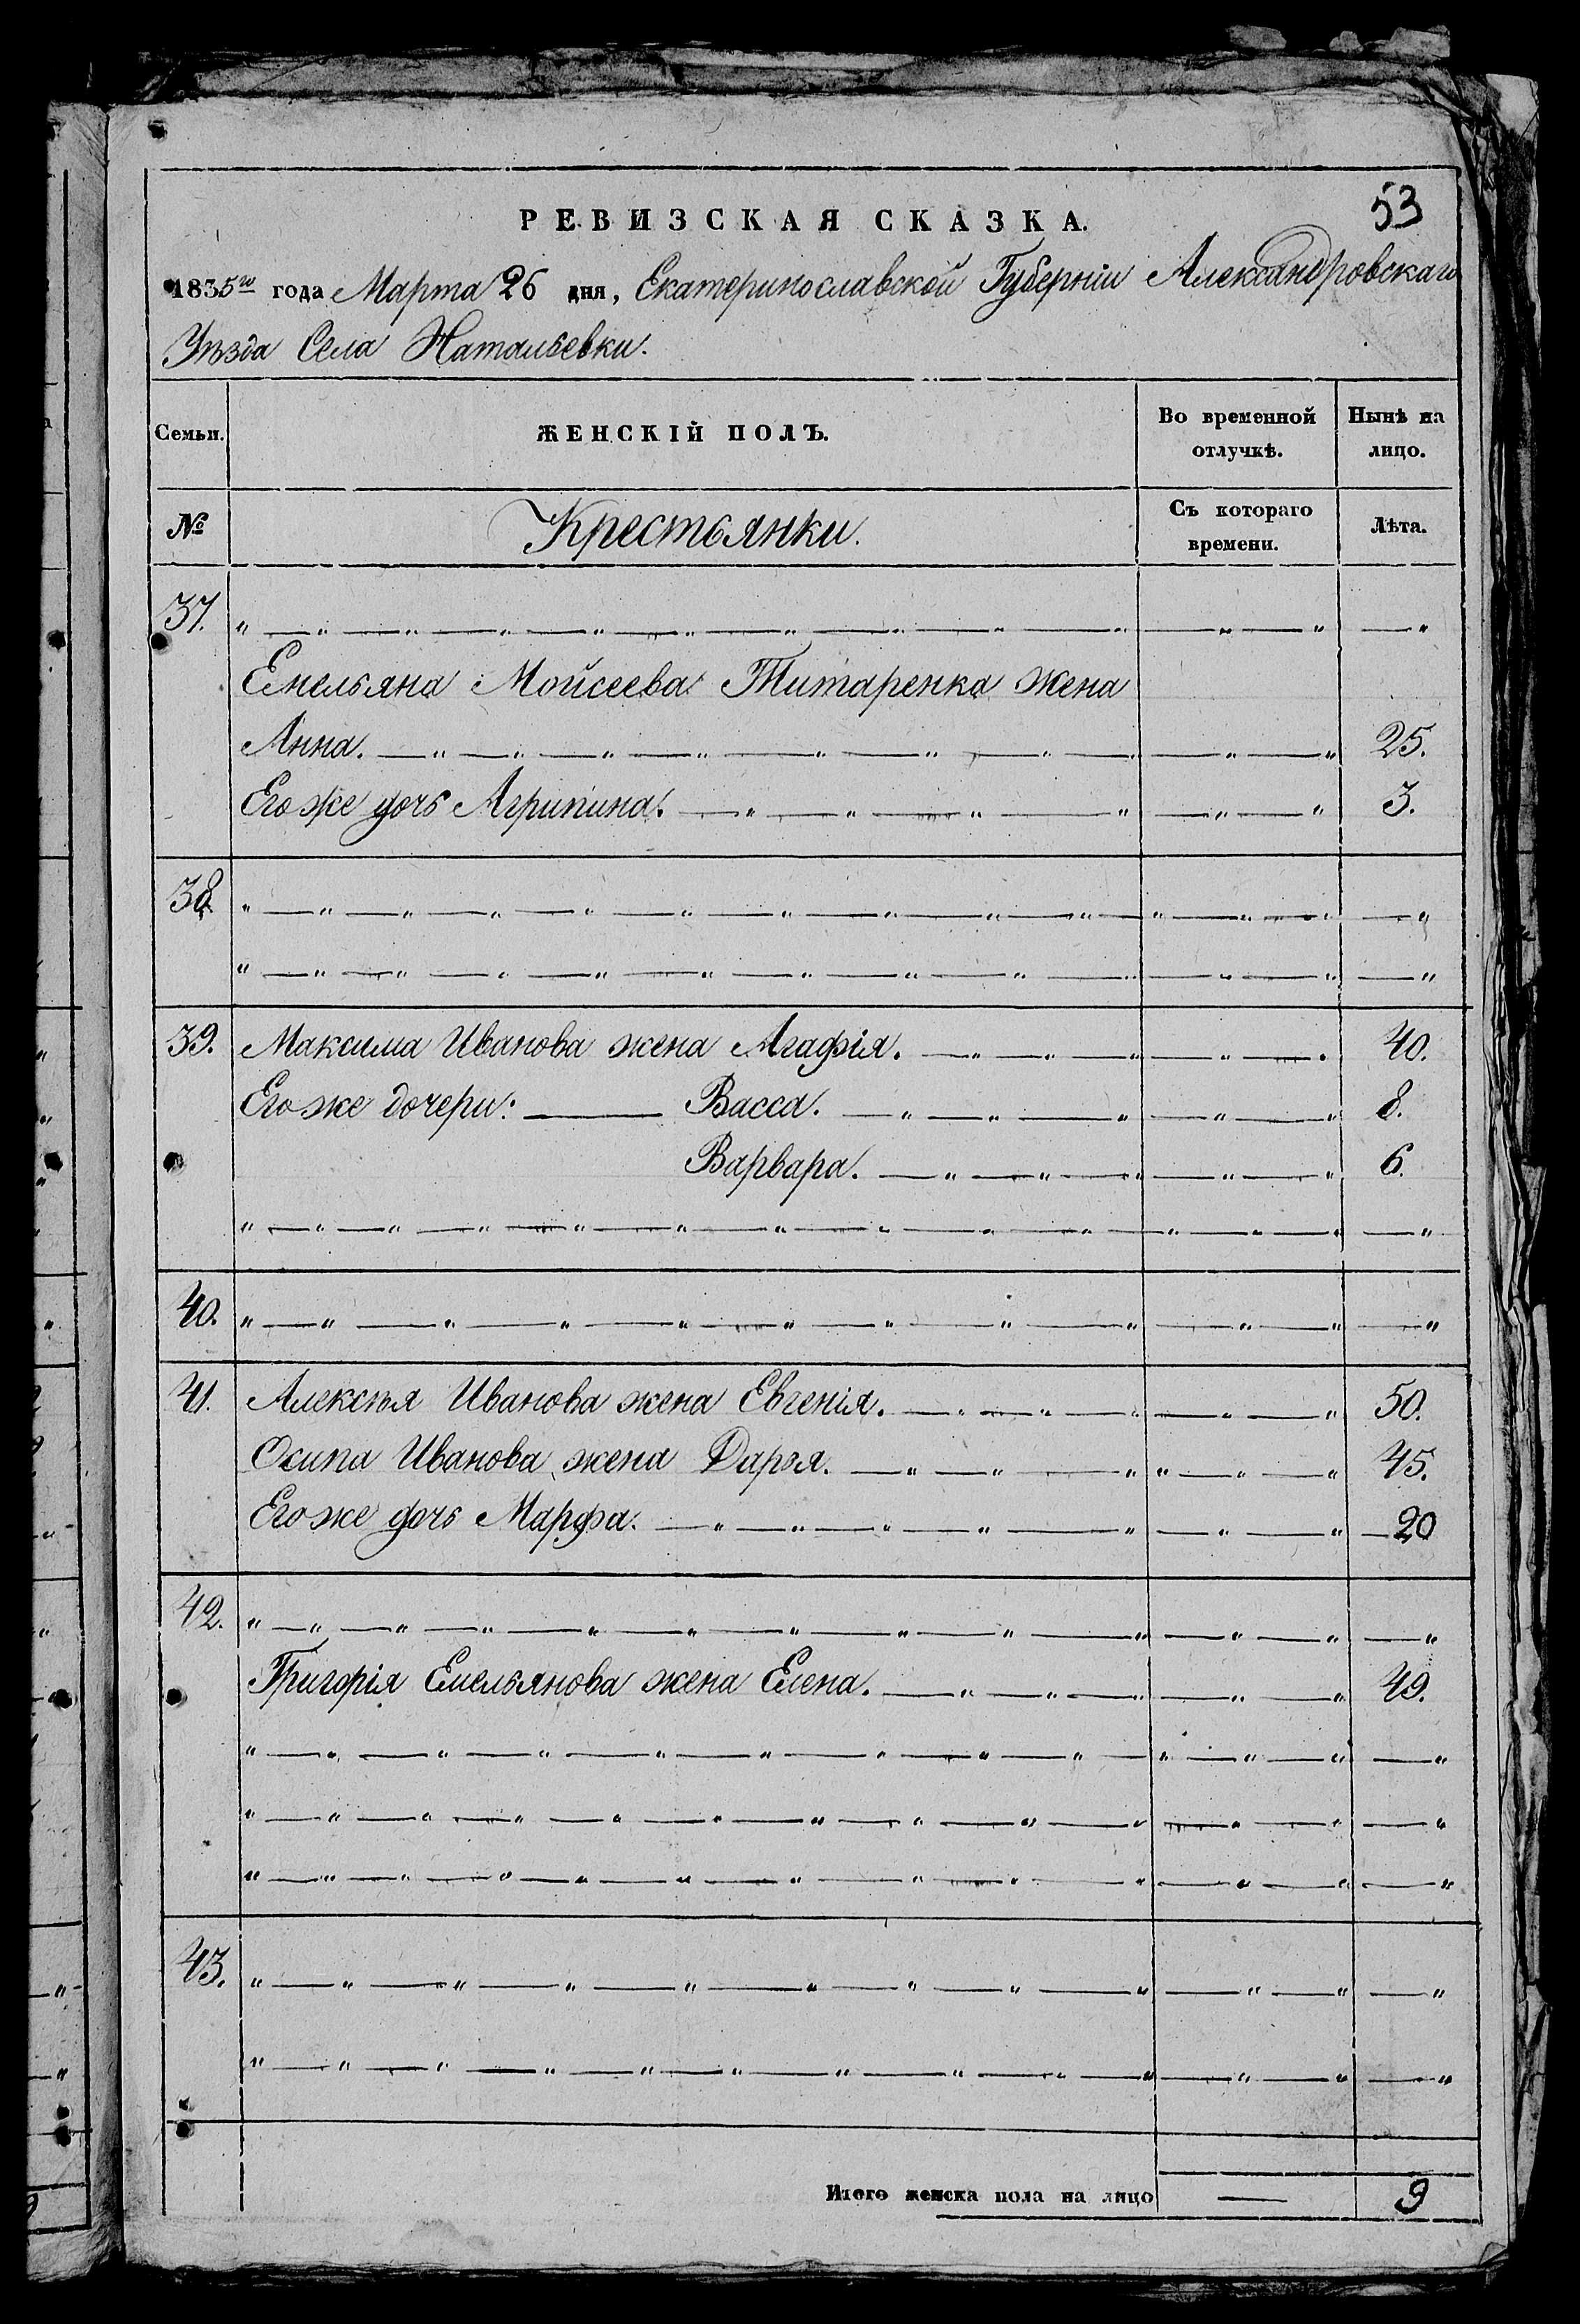 53
РЕВИЗСКАЯ СКАЗКА.
1835го года Марта 26 дня, Екатеринославской Губерніи Александровскаго
Уѣзда Села Натальевки.
Семьи. ЖЕНСКІЙ ПОЛЪ. Во временной отлучкѣ. Нынѣ на лицо.
№ Крестьянки. Съ котораго времени. Лѣта.
37. " — " — " — " — " — " — " — " — " — " — " — "
Емельяна Мойсеева Титаренка жена
Анна. — " — " — " — " — " — " — " — " — " — " 25.
Его же дочь Агрипина. — " — " — " — " — " — " 3.
38. " — " — " — " — " — " — " — " — " — " — " — "
" — " — " — " — " — " — " — " — " — " — " — "
39. Максима Иванова жена Агафія. — " — " — " — " — 40.
Его же дочери: — Васса. — " — " — " — " — " 8.
Варвара. — " — " — " — " — " 6.
" — " — " — " — " — " — " — " — " — " — " — "
40. " — " — " — " — " — " — " — " — " — " — " — "
41. Алексѣя Иванова жена Евгенія. — " — " — " — " — " 50.
Осипа Иванова жена Дарья. — " — " — " " — " — " 45.
Его же дочь Марфа. — " — " — " — " — " — " — " — 20
42. " — " — " — " — " — " — " — " — " — " — " — "
Григорія Емельянова жена Елена. — " — " — " — " — " 49.
" — " — " — " — " — " — " — " — " — " — " — "
" — " — " — " — " — " — " — " — " — " — " — "
" — " — " — " — " — " — " — " — " — " — " — "
43. " — " — " — " — " — " — " — " — " — " — " — "
" — " — " — " — " — " — " — " — " — " — " — "
Итого женска пола на лицо — 9